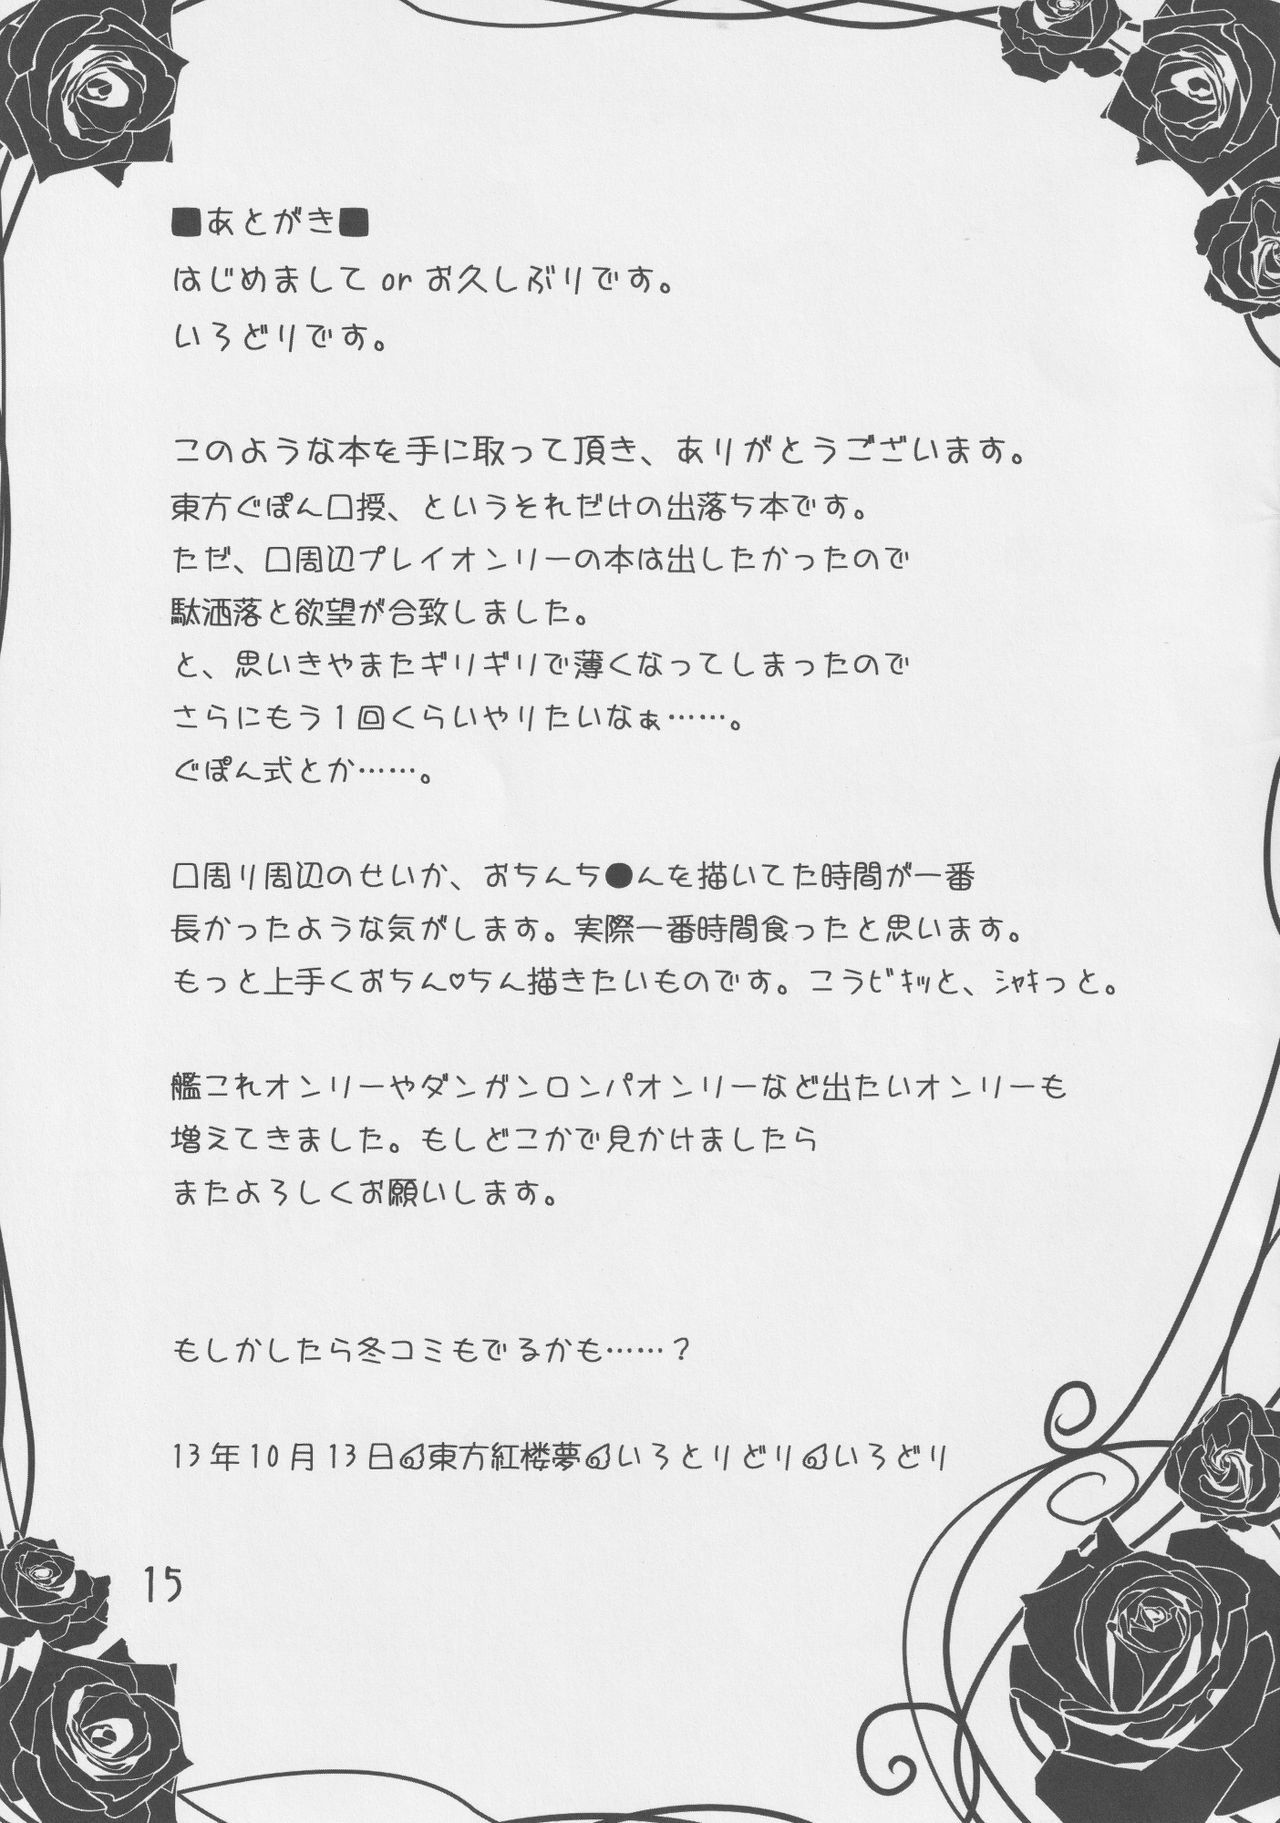 ■あとがき■
はじめまして or お久しぶりです。
いろどりです。
このような本を手に取って頂き、ありがとうございます。
東方ぐぽん口授、というそれだけの出落ち本です。
ただ、口周辺プレイオンリーの本は出したかったので
駄洒落と欲望が合致しました。
と、思いきやまたギリギリで薄くなってしまったので
さらにもう1回くらいやりたいなぁ……。
ぐぽん式とか……。
口周り周辺のせいか、おちんち●んを描いてた時間が一番
長かったような気がします。実際一番時間食ったと思います。
もっと上手くおちん♡ちん描きたいものです。こうﾋﾞｷｯと、ｼｬｷっと。
艦これオンリーやダンガンロンパオンリーなど出たいオンリーも
増えてきました。もしどこかで見かけましたら
またよろしくお願いします。
もしかしたら冬コミもでるかも……？
13年10月13日 東方紅楼夢 いろとりどり いろどり
15